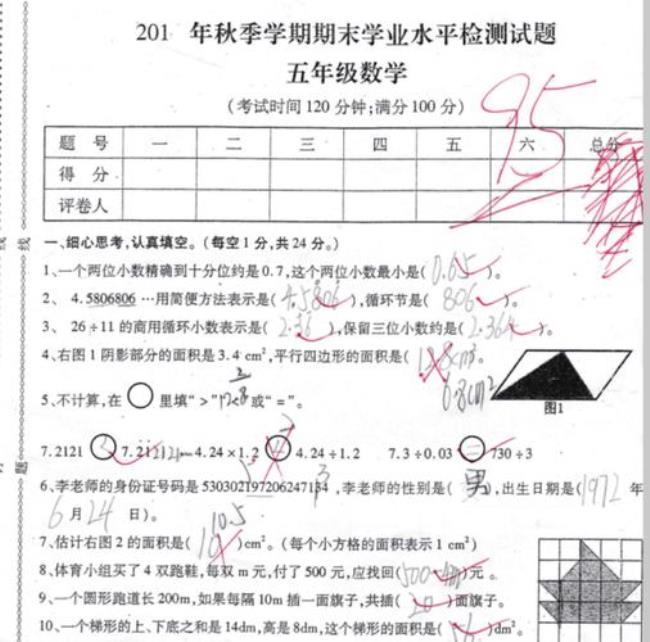 201 年秋季学期期末学业水平检测试题
五年级数学
(考试时间120分钟;满分100分)
95
题 号 一 二 三 四 五 六 总分
得 分
评卷人
一、细心思考,认真填空。(每空1分,共24分。)
1、一个两位小数精确到十分位约是0.7,这个两位小数最小是( 0.65 )。
2、 4.5806806 …用简便方法表示是( 4.5806 ),循环节是( 806 )。
3、 26÷11的商用循环小数表示是( 2.36 ),保留三位小数约是( 2.364 )。
4、右图1阴影部分的面积是3.4 cm²,平行四边形的面积是( cm²。
图1
5、不计算,在 ○ 里填“>”“<”或“=”。
7.2121 7.2121 4.24×1.2 4.24÷1.2 7.3÷0.03 = 730÷3
6、李老师的身份证号码是530302197206247134 ,李老师的性别是( 男 ),出生日期是( 1972 年
6 月 24 日)。
10.5
7、估计右图2的面积是( )cm²。(每个小方格的面积表示1 cm²)
8、体育小组买了4双跑鞋,每双m元,付了500元,应找回( 500-4m )元 。
9、一个圆形跑道长200m,如果每隔10m插一面旗子,共插( 20 )面旗子。
10、一个梯形的上、下底之和是14dm,高是8dm,这个梯形的面积是( )dm²。
线
题